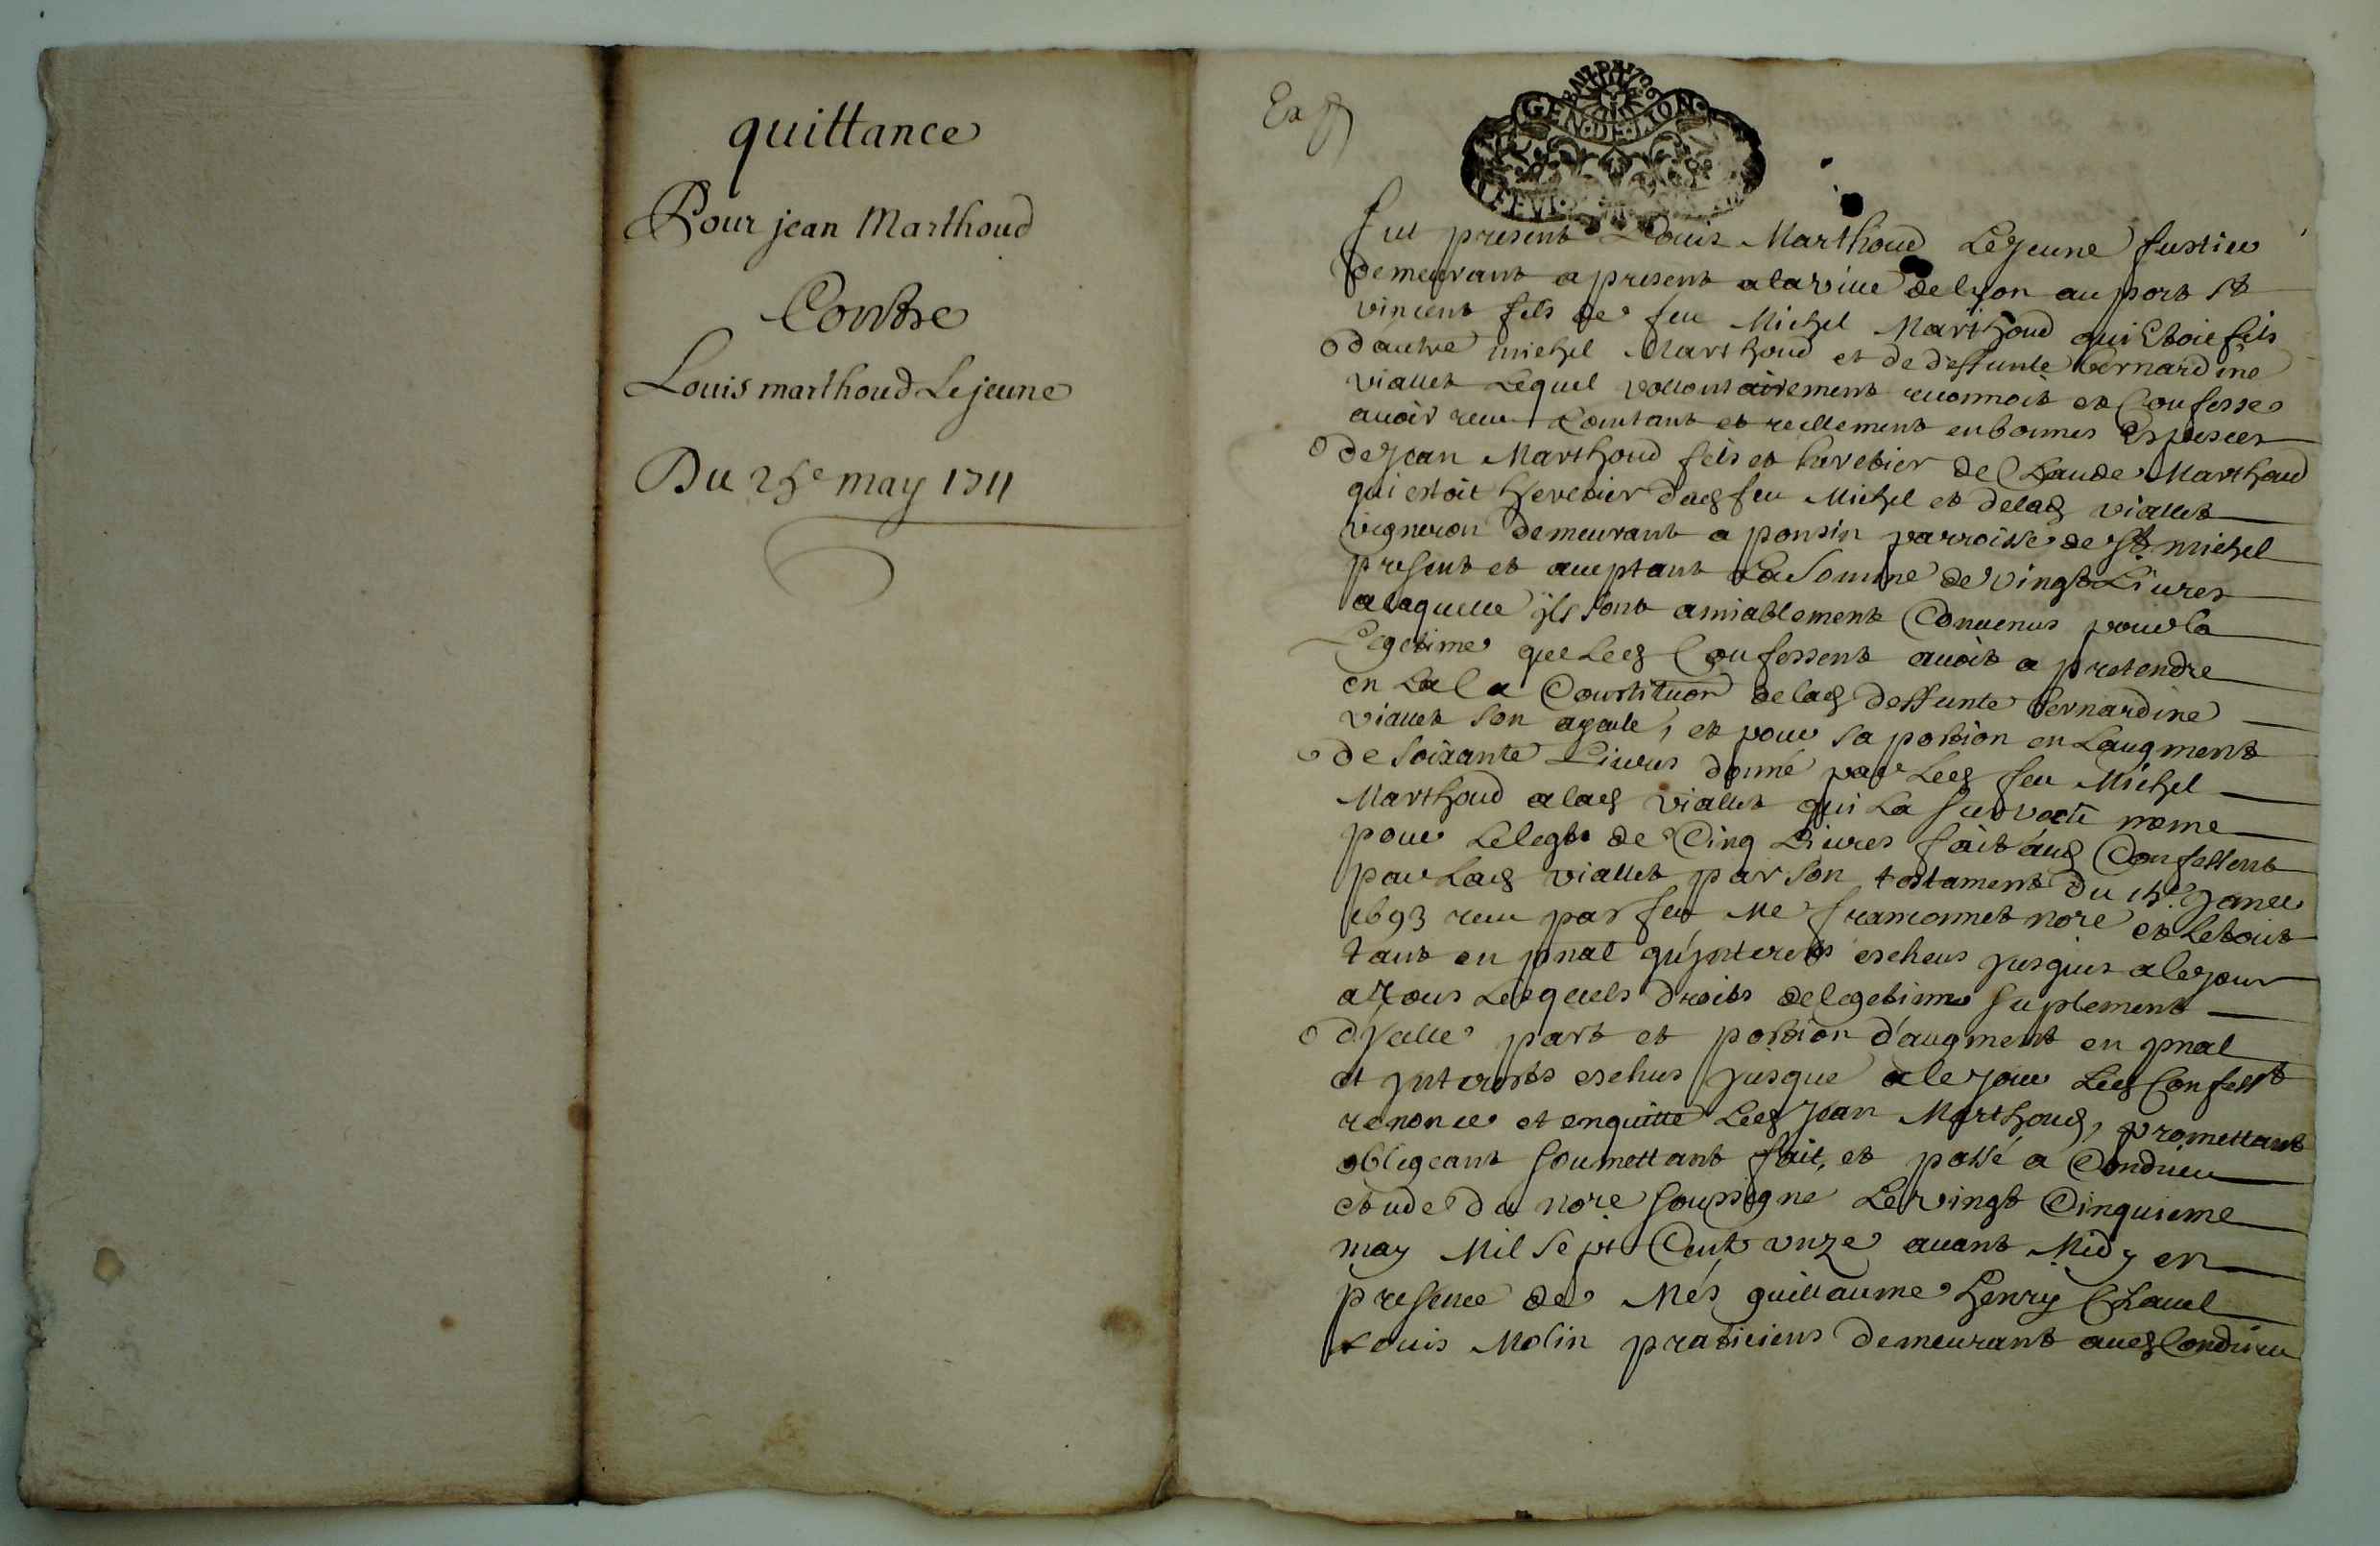 quittance
Pour jean Marthoud
Contre
Louis marthoud Lejeune
Du 25e may 1711
Ex
GEN DE MON
fut present Louis Marthoud Lejeune fustier
demeurant a present a la ville de lyon au port st
vincent fils de feu Michel Marthoud qui Etoit fils
dautre michel Marthoud et de deffunte bernardine
viallet Lequel vollontairement reconnoit et Confesse
avoir receu Comtant et reellement en bonnes Especes
de Jean Marthoud fils et heretier de Claude Marthoud
qui estoit heretier dud feu Michel et delad viallet
vigneron demeurant a ponsin parroisse de st michel
present et acceptant La Somme de vingt Livres
a laquelle ils sont amiablement Convenus pour la
Legetime que Led Confessent avoit a pretendre
en La Constitution delad deffunte bernardine
viallet son ayeule, et pour sa portion en Laugment
de soixante Livres donné par Led feu Michel
Marthoud alad viallet qui La meme
pour Lelegt de Cinq Livres fait aud Confessent
par Lad viallet par son testament du 15e Janer
1693 receu par feu Me framonnet nore et Letout
tant en pnal qu'interets escheus jusques a ce jour
a Tous Lesquels droits de legetime suplement
d'Jcelle part et portion d'augment en pnal
et jnterests eschus jusque a ce jour Led Confesst
renonce et enquitte Led Jean Marthoud, promettant
obligeant soumettant fait, et passé a Condrieu
etude du nore soussigne Le vingt Cinquieme
may Mil sept Cent unze avant Midy en
presence de Mes guillaume henry Chavel
Louis Molin praticiens demeurant aud Condrieu